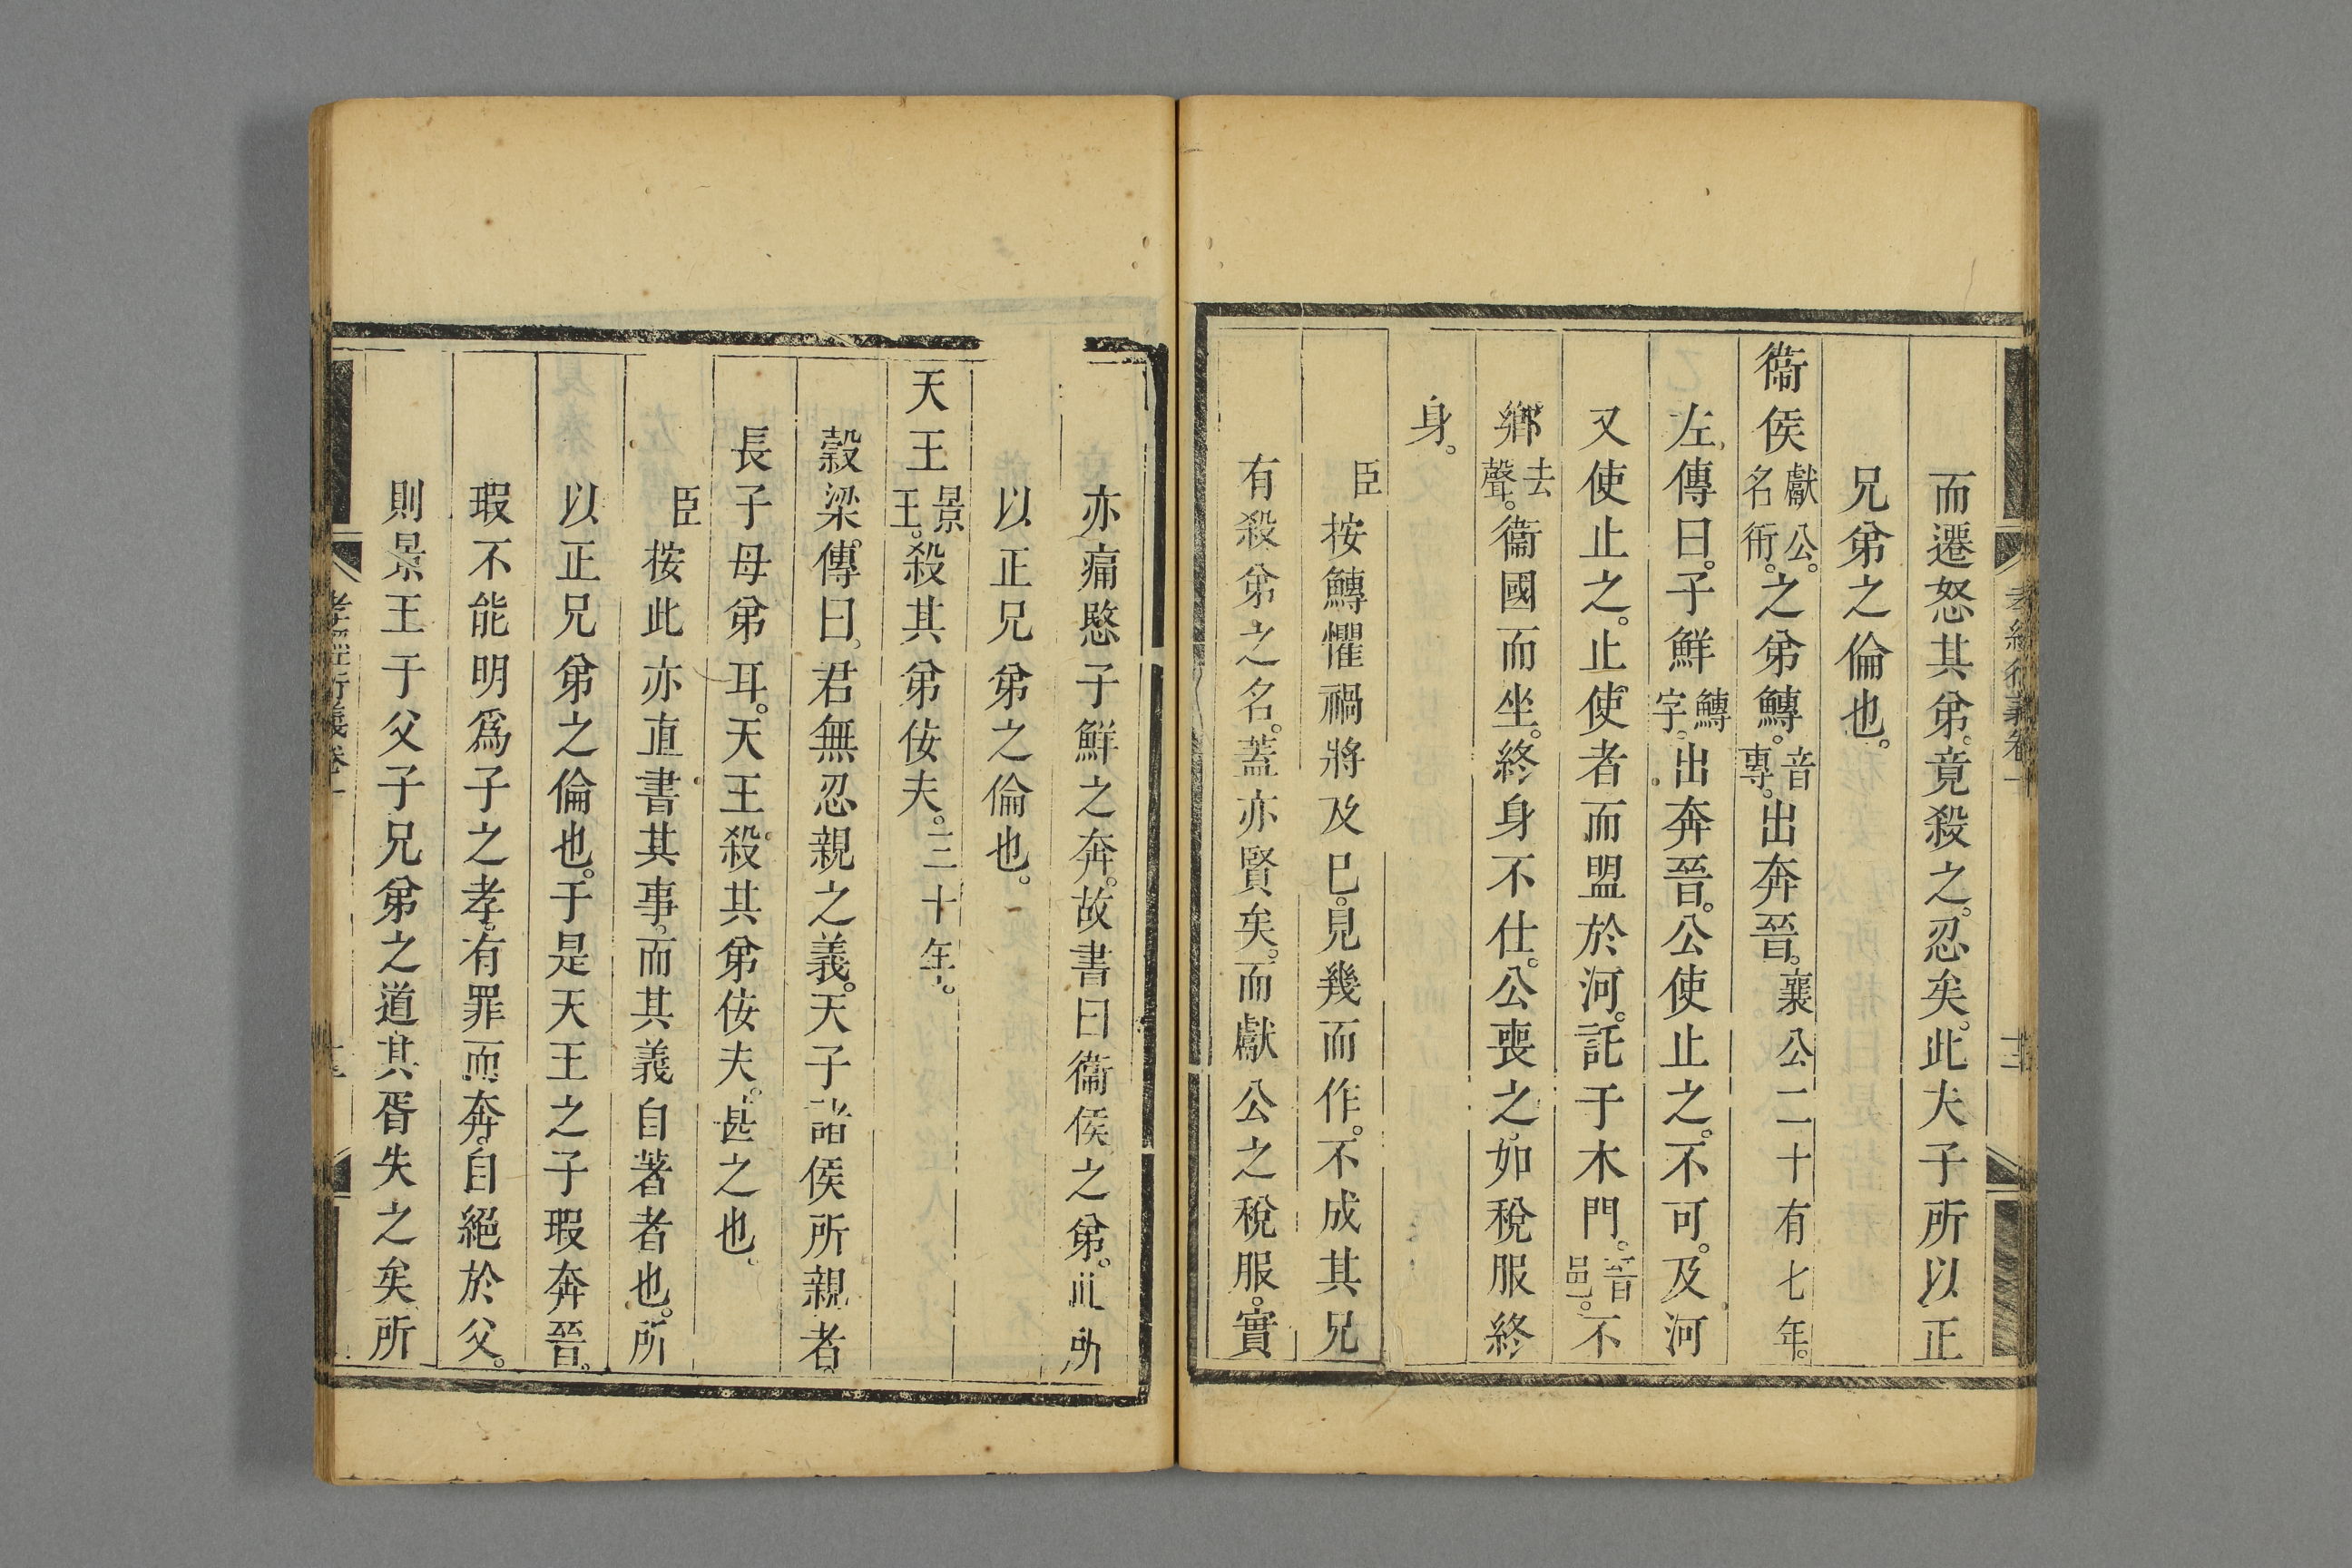 而遷怒其弟。竟殺之。忍矣。此夫子所以正
兄弟之倫也。
衞侯獻公。名衎。之弟鱄。音專。出奔晉。襄公二十有七年。
左傳曰。子鮮鱄字。出奔晉。公使止之。不可。及河
又使止之。止使者而盟於河。託于木門。晉邑。不
鄉去聲。衞國而坐。終身不仕。公喪之。如稅服終
身。
臣按鱄懼禍將及已。見幾而作。不成其兄
有殺弟之名。蓋亦賢矣。而獻公之稅服。實
亦痛愍子鮮之奔。故書曰衞侯之弟。此所
以正兄弟之倫也。
天王景王。殺其弟佞夫。三十年。
穀梁傳曰。君無忍親之義。天子諸侯所親者。
長子母弟耳。天王殺其弟佞夫。甚之也。
臣按此亦直書其事。而其義自著者也。所
以正兄弟之倫也。于是天王之子瑕奔晉。
瑕不能明爲子之孝。有罪而奔。自絕於父。
則景王于父子兄弟之道其胥失之矣所
孝經衍義卷